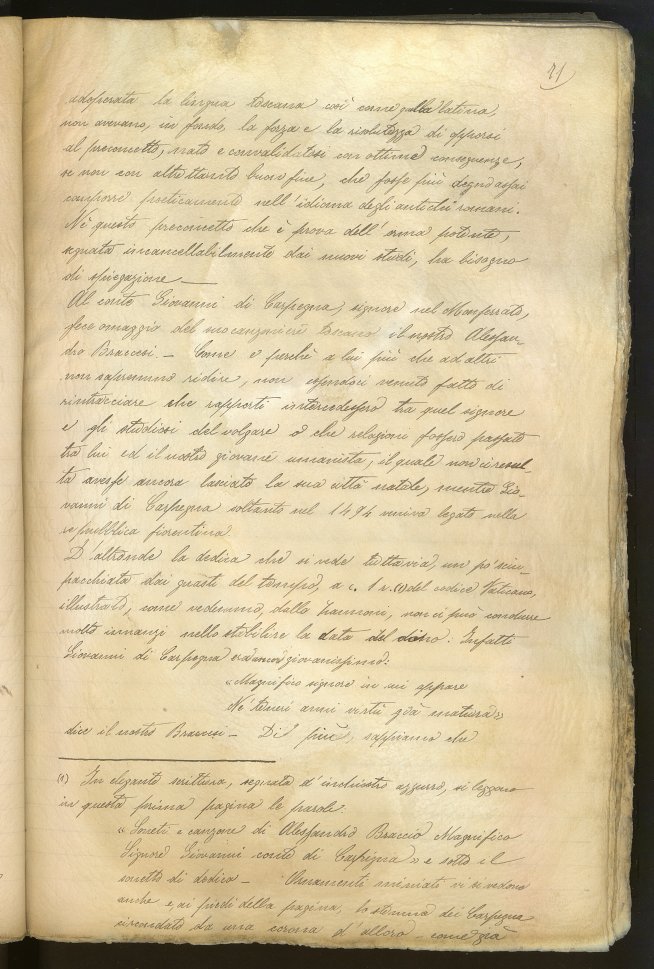 71
adoperata la lingua toscana così come quella latina,
non avevano, in fondo, la forza e la risolutezza di opporsi
al preconcetto, nato e convalidatosi con ottime conseguenze,
se non con altrettanto buon fine, che fosse più degno assai
comporre poeticamente nell'idioma degli antichi romani.
Nè questo preconcetto che è prova dell'orma potente,
segnata incancellabilmente dai nuovi studi, ha bisogno
di spiegazione —
Al conte Giovanni di Carpegna, signore nel Monferrato,
fece omaggio del suo canzoniere toscano il nostro Alessan-
dro Braccesi. — Come e perchè a lui più che ad altri
non sapremmo ridire, non essendoci venuto fatto di
rintracciare che rapporti intercedessero tra quel signore
e gli studiosi del volgare o che relazioni fossero passate
tra lui ed il nostro giovane umanista, il quale non ci resul-
ta avesse ancora lasciato la sua città natale, mentre Gio-
vanni di Carpegna soltanto nel 1494 veniva legato nella
repubblica fiorentina.
D'altronde la dedica che si vede tuttavia un po' sciu-
pacchiata dai guasti del tempo, a c. 1 r. (1) del codice Vaticano,
illustrato, come vedemmo, dallo Zannoni, non ci può condurre
molto innanzi nello stabilire la data del dono. Infatti
Giovanni di Carpegna era ancor giovanissimo:
"Magnifico signore in cui appare
Ne' teneri anni virtù già matura"
dice il nostro Braccesi — Di più, sappiamo che
(1) In elegante scrittura, segnata d'inchiostro azzurro, si leggono
in questa prima pagina le parole:
"Soneti e canzone di Alessandro Braccio Magnifico
Signore Giovanni conte di Carpigna" e sotto il
sonetto di dedica — Ornamenti miniati vi si vedono
anche e, ai piedi della pagina, lo stemma dei Carpegna
circondato da una corona d'alloro — come già